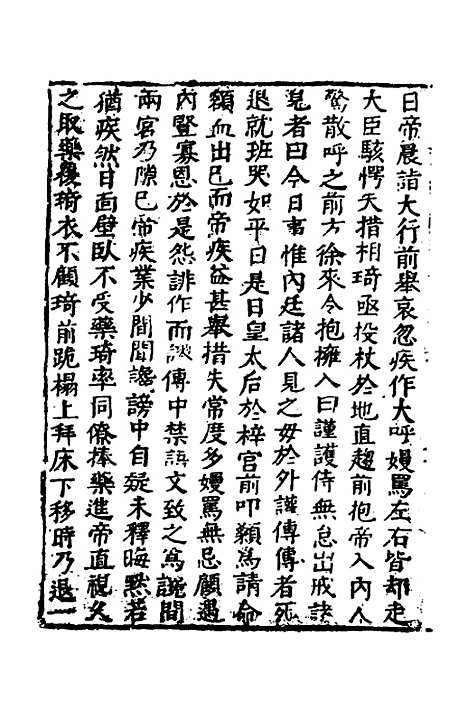 日帝晨詣大行前舉哀忽疾作大呼嫚罵左右皆却走
大臣駭愕失措相琦亟投杖於地直趨前抱帝入內人
驚散呼之前方徐來令抱擁入曰謹護侍無怠出戒諸
見者曰今日事惟內廷諸人見之毋於外讙傳傳者死
退就班哭如平日是日皇太后於梓宮前叩顙為請命
額血出已而帝疾益甚舉措失常度多嫚罵無忌顧遇
內豎寡恩於是怨誹作而訛傳中禁語文致之為說間
兩宮乃隙已帝疾業少間聞讒謗中自疑未釋晦默若
猶疾然日面壁臥不受藥琦率同僚捧藥進帝直視久
之取藥覆琦衣不顧琦前跪榻上拜床下移時乃退一